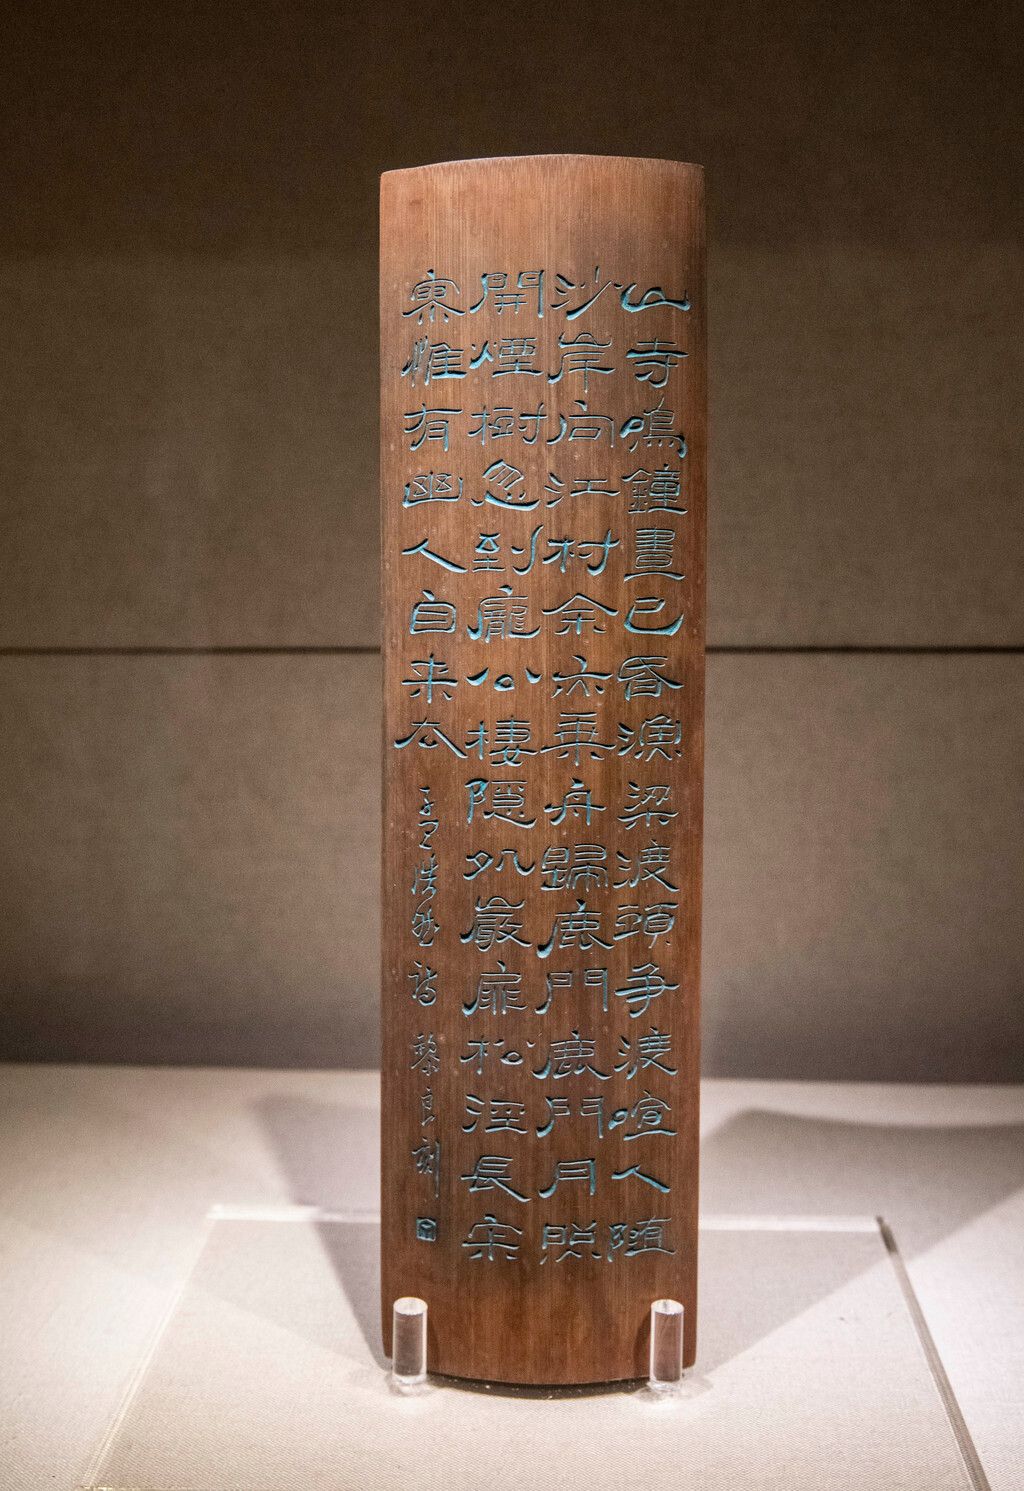 山寺鳴鐘晝已昏漁梁渡頭争渡喧人随
沙岸向江村余亦乘舟歸鹿門鹿門月照
開煙樹忽到龐公棲隱処巖扉松徑長寂
寞惟有幽人自来去 孟浩然詩 黎良刻